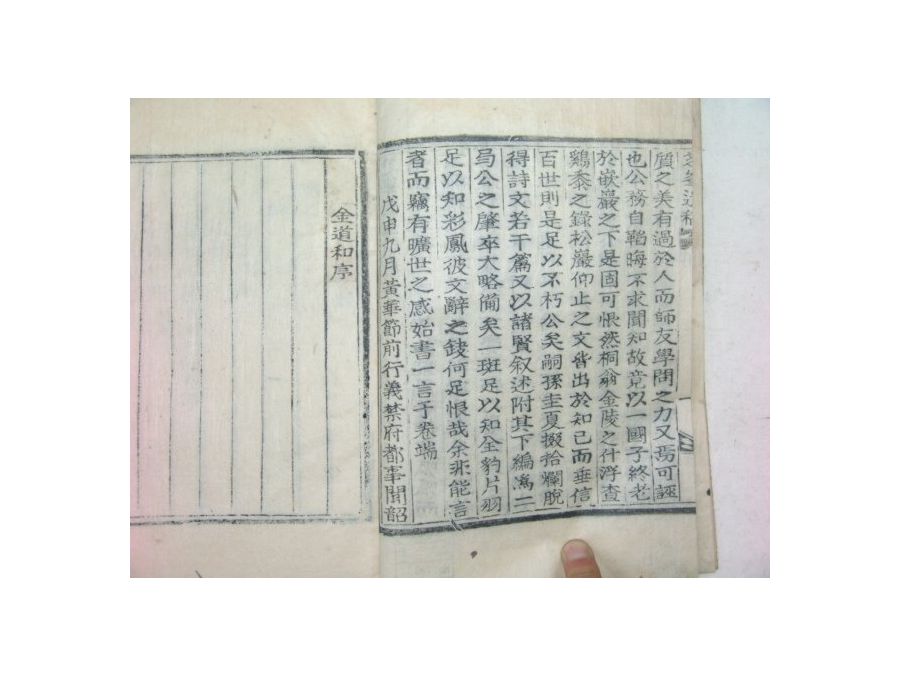 質之美有過於人而師友學問之力又焉可誣
也公務自韜晦不求聞知故竟以一國子終老
於嵌巖之下是固可恨然桐翁金陵之什浮查
鷄黍之錄松巖仰止之文皆出於知己而垂信
百世則是足以不朽公矣嗣孫圭夏掇拾爛脫
得詩文若干篇又以諸賢叙述附其下編爲二
局公之肇卒大略備矣一斑足以知全豹片羽
足以知彩鳳彼文辭之鈌何足恨哉余非能言
者而竊有曠世之感始書一言于卷端
戊申九月黃華節前行義禁府都事聞韶
金道和序